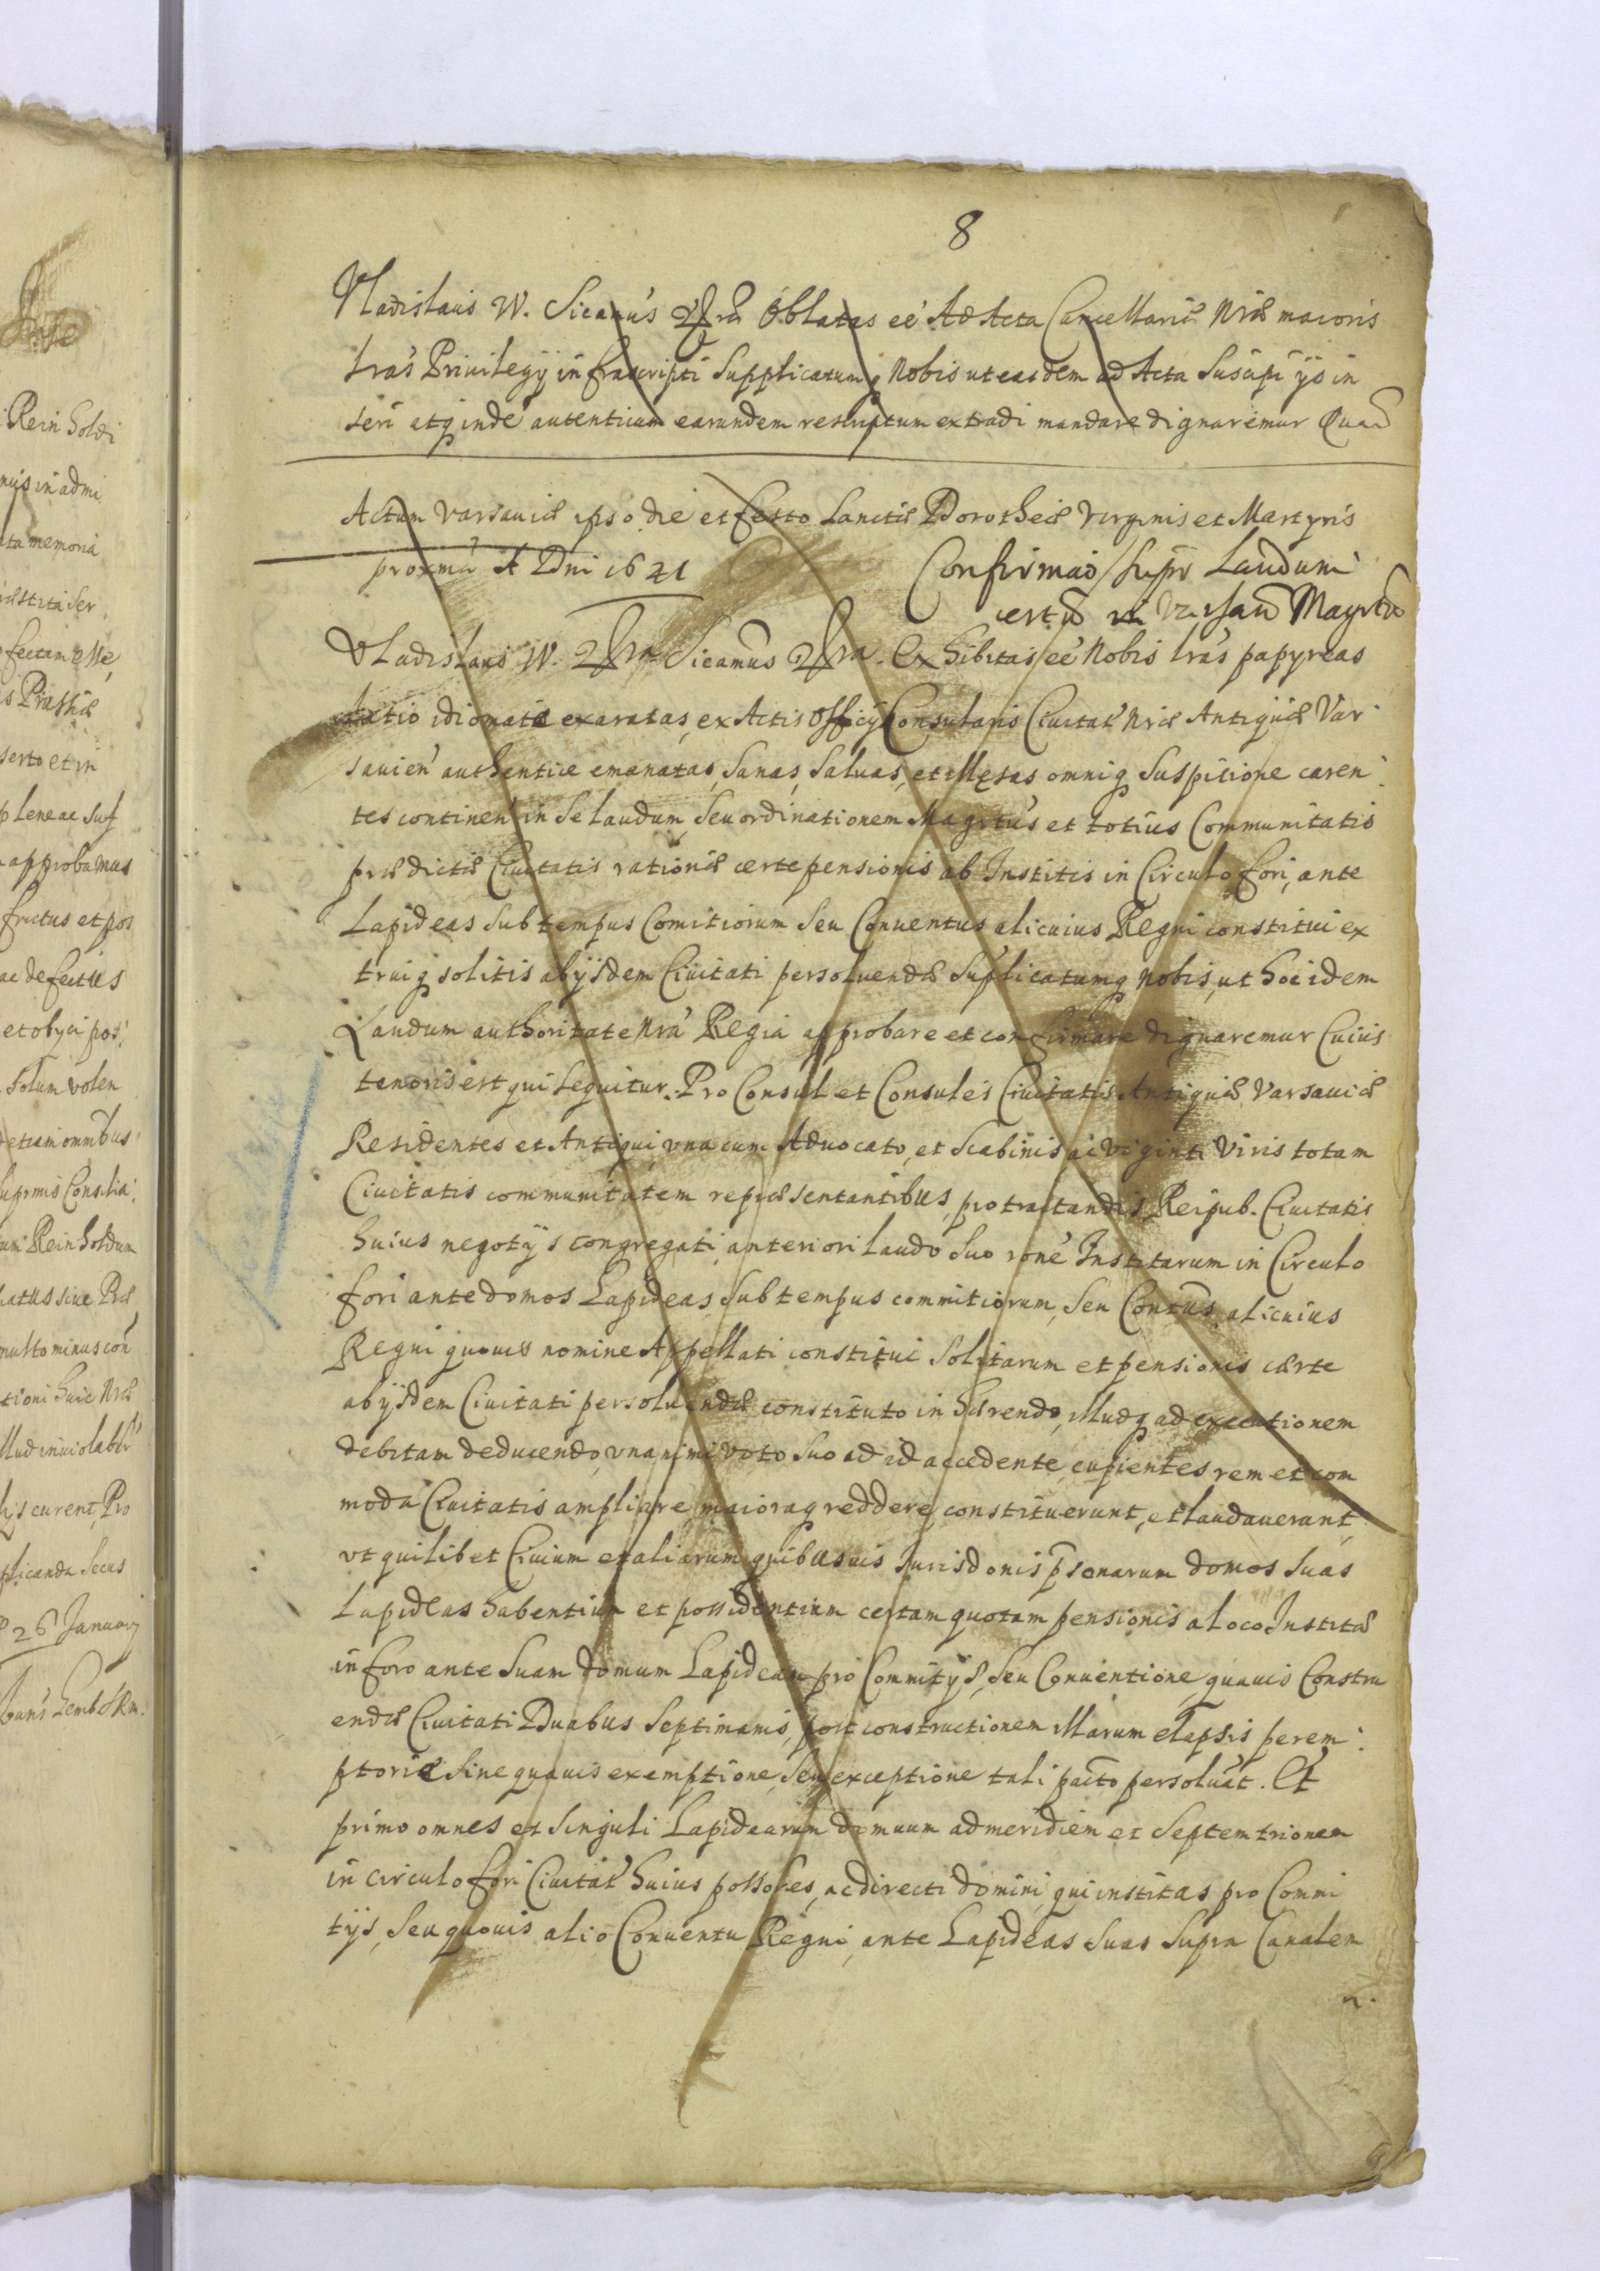 8
Vladislaus W. Sicanus &ra Oblatas eé Ad Acta Cancellariæ Nræ maioris
lras Priuilegÿ infrascripti Supplicatumq Nobis ut easdem ad Acta Suscipi ÿs in
seri atq inde autenticum earundem rescriptum extradi mandare dignaremur Quas
Actum Varsauiæ ipso die et festo Sanctæ Dorotheæ Virginis et Martyris
proxmu A Dni 1641
Confirmao Supr Laudum
certu in Varsau Magrtu
Vladislaus W. &ra Sicanus &ra. Exhibitas eé Nobis lras papyreas
latio idiomate exaratas, ex Actis Officÿ Consularis Ciuitat Nræ Antiquæ Var
sauien authentice emanatas, Sanas, Saluas, et illęsas omniq Suspitione caren:
tes continen in Se laudum, Seu ordinationem Magrtus et totius Communitatis
prædictæ Ciuitatis rationæ certe pensionis ab Institis in Circulo fori, ante
Lapideas Sub tempus Comitiorum Seu Conuentus alicuius Regni constitui ex
truiq solitis ab ÿsdem Ciuitati persoluendæ Suplicatumq nobis, ut hoc idem
Laudum authoritate Nra Regia approbare et confirmare dignaremur Cuius
tenoris est qui sequitur. Pro Consul et Consules Ciuitatis Antiquæ Varsauiæ
Residentes et Antiqui vna cum Aduocato, et Scabinis ac Viginti Viris totam
Ciuitatis communitatem repræsentantibus, pro tractandis Reipub. Ciuitatis
huius negotÿs congregati, anteriori laudo Suo rone Institarum in Circulo
fori ante domos Lapideas Sub tempus commitiorum, Seu Contus alicuius
Regni quouis nomine Appellati constitui Solitarum et pensionis certe
ab ÿsdem Ciuitati persoluendæ constituto in hærendo, illudq ad executionem
debitam deducendo, vnanimi voto Suo ad id accedente, cupientes rem et com
moda Ciuitatis ampliare maioraq reddere constituerunt, et laudauerunt,
vt quilibet Ciuium et aliarum quibusuis Jurisdonis psonarum domos Suas
Lapideas habentium et possidentium certam quotam pensionis a loco Institæ
in foro ante Suam domum Lapideam pro Commitÿs, Seu Conuentione quauis Constru
endæ Ciuitati Duabus Septimanis, post constructionem illarum elapsis perem:
ptorie Sine quauis exemptione, Seu exceptione tali pacto persoluat. Et
primo omnes et singuli Lapidearum domuum ad meridiem et Septemtrionem
in circulo fori Ciuitat huius possores, ac directi domini, qui institas pro Commi
tÿs, Seu quouis alio Conuentu Regni, ante Lapideas Suas Supra Canalem
Rein holdi
nus in admi
ata memoria
æstita Ser
fectam esse,
s Prassæ
serto et in
plene ac Suf
approbamus
fructus et pos
ac defectus
et obÿci pos:
Solum volen
etiam omnibus
Suprmis Consilia:
um Rein holdum
atus siue Præ
multo minus con
tioni huic Nræ
illud inuiolabilr
lÿs curent, Pro
plicanda Secus
26 Januarÿ